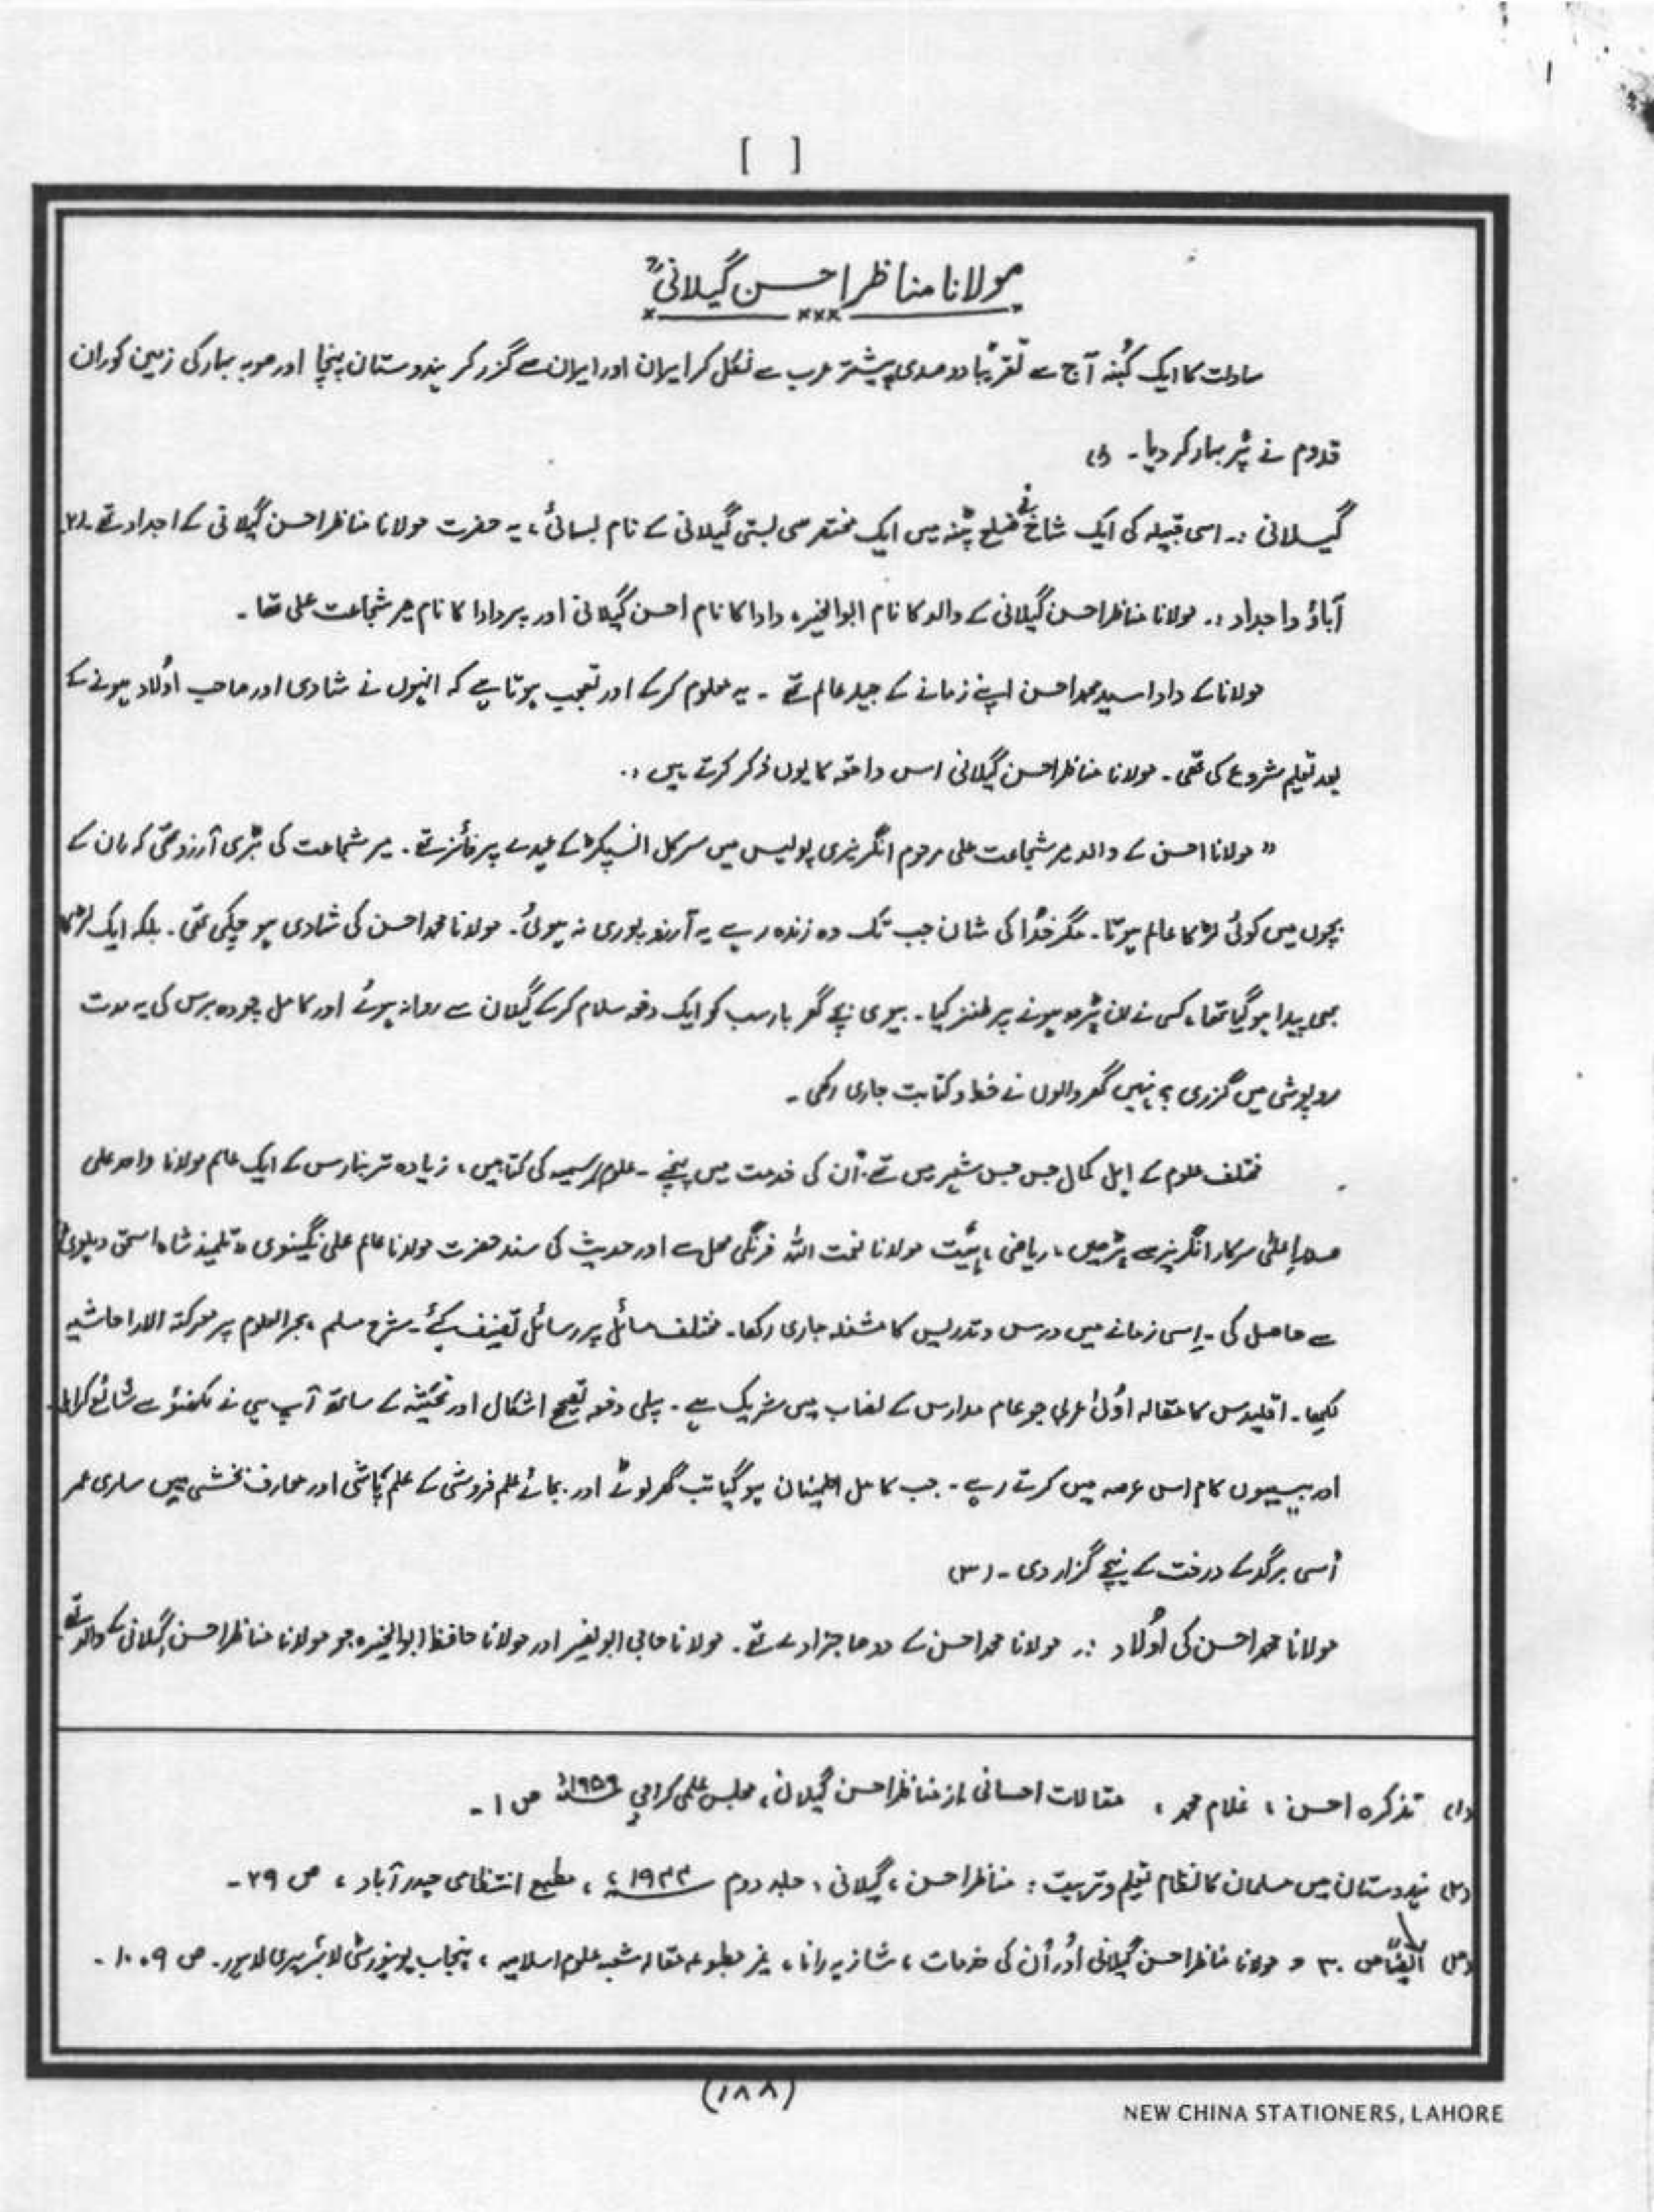 [ ]
مولانا مناظر احسن گیلانیؒ
سادات کا ایک کُنبہ آج سے تقریباً دو صدی پیشتر عرب سے نکل کر ایران اور ایران سے گزر کر ہندوستان پہنچا اور صوبہ بہار کی زمین کو ان
قدوم نے پُر بہار کر دیا۔ (۱)
گیلانی :۔ اسی قبیلہ کی ایک شاخ نے ضلع پٹنہ میں ایک مختصر سی بستی گیلانی کے نام بسائی، یہ حضرت مولانا مناظر احسن گیلانی کے اجداد تھے۔ (۲)
آباؤ واجداد :۔ مولانا مناظر احسن گیلانی کے والد کا نام ابوالخیر، دادا کا نام احسن گیلانی اور پردادا کا نام میر شجاعت علی تھا۔
مولانا کے دادا سید محمد احسن اپنے زمانے کے جید عالم تھے ۔ یہ معلوم کر کے اور تعجب ہوتا ہے کہ انہوں نے شادی اور صاحب اَولاد ہونے کے
بعد تعلیم شروع کی تھی۔ مولانا مناظر احسن گیلانی اس واقعہ کا یوں ذکر کرتے ہیں :۔
" مولانا احسن کے والد میر شجاعت علی مرحوم انگریزی پولیس میں سرکل انسپکٹر کے عہدے پر فائز تھے۔ میر شجاعت کی بڑی آرزو تھی کہ ان کے
بچوں میں کوئی لڑکا عالم ہوتا۔ مگر خدا کی شان جب تک وہ زندہ رہے یہ آرزو پوری نہ ہوئی۔ مولانا محمد احسن کی شادی ہو چکی تھی۔ بلکہ ایک لڑکا
بھی پیدا ہو گیا تھا، کسی نے ان پڑھ ہونے پر طنز کیا۔ بیوی بچے گھر بار سب کو ایک دفعہ سلام کر کے گیلان سے روانہ ہوئے اور کامل چودہ برس کی یہ مدت
روپوشی میں گزری نہیں گھر والوں نے خط و کتابت جاری رکھی ۔
مختلف علوم کے اہل کمال جس جس شہر میں تھے، اُن کی خدمت میں پہنچے ۔ علوم رسمیہ کی کتابیں، زیادہ تر بنارس کے ایک عالم مولانا واحد علی
سرکار انگریز سے پڑھیں، ریاضی، ہیئت مولانا نعمت اللہ فرنگی محل سے اور حدیث کی سند حضرت مولانا عالم علی نگینوی، تلمیذ شاہ اسحق دہلویؒ
سے حاصل کی ۔ اِسی زمانے میں درس و تدریس کا مشغلہ جاری رکھا۔ مختلف مسائل پر رسائل تصنیف کئے۔ شرح مسلم ، بحرالعلوم پر معرکتہ الارا حاشیہ
لکھا۔ اقلیدس کا مقالہ اُولیٰ عربی جو عام مدارس کے نصاب میں شریک ہے ۔ پہلی دفعہ تصحیح اشکال اور تحشیہ کے ساتھ آپ ہی نے لکھنؤ سے شائع کرایا۔
اور بیسیوں کام اس عرصہ میں کرتے رہے ۔ جب کامل اطمینان ہو گیا تب گھر لوٹے اور بجائے علم فروشی کے علم پاشی اور معارف بخشی میں ساری عمر
اُسی برگد کے درخت کے نیچے گزار دی ۔ (۳)
مولانا محمد احسن کی اُولاد :۔ مولانا محمد احسن کے دو صاحبزادے تھے۔ مولانا حاجی ابو نصیر اور مولانا حافظ ابوالخیر، جو مولانا مناظر احسن گیلانی کے والد تھے۔
(۱) تذکرہ احسن ، غلام محمد ، مقالات احسانی از مناظر احسن گیلانی، مجلس علمی کراچی ۱۹۵۹ء ص ۱ ۔
(۲) ہندوستان میں مسلمان کا نظام تعلیم و تربیت : مناظر احسن ، گیلانی ، جلد دوم ۱۹۴۴ء ، مطبع انتظامی حیدر آباد ، ص ۲۹ ۔
(۳) ایضاً ص ۳۰ و مولانا مناظر احسن گیلانی اُور اُن کی خدمات ، شازیہ رانا ، غیر مطبوعہ مقالہ شعبہ علوم اسلامیہ ، پنجاب یونیورسٹی لائبریری لاہور۔ ص ۹۔۱۰ ۔
(۱۸۸)
NEW CHINA STATIONERS, LAHORE